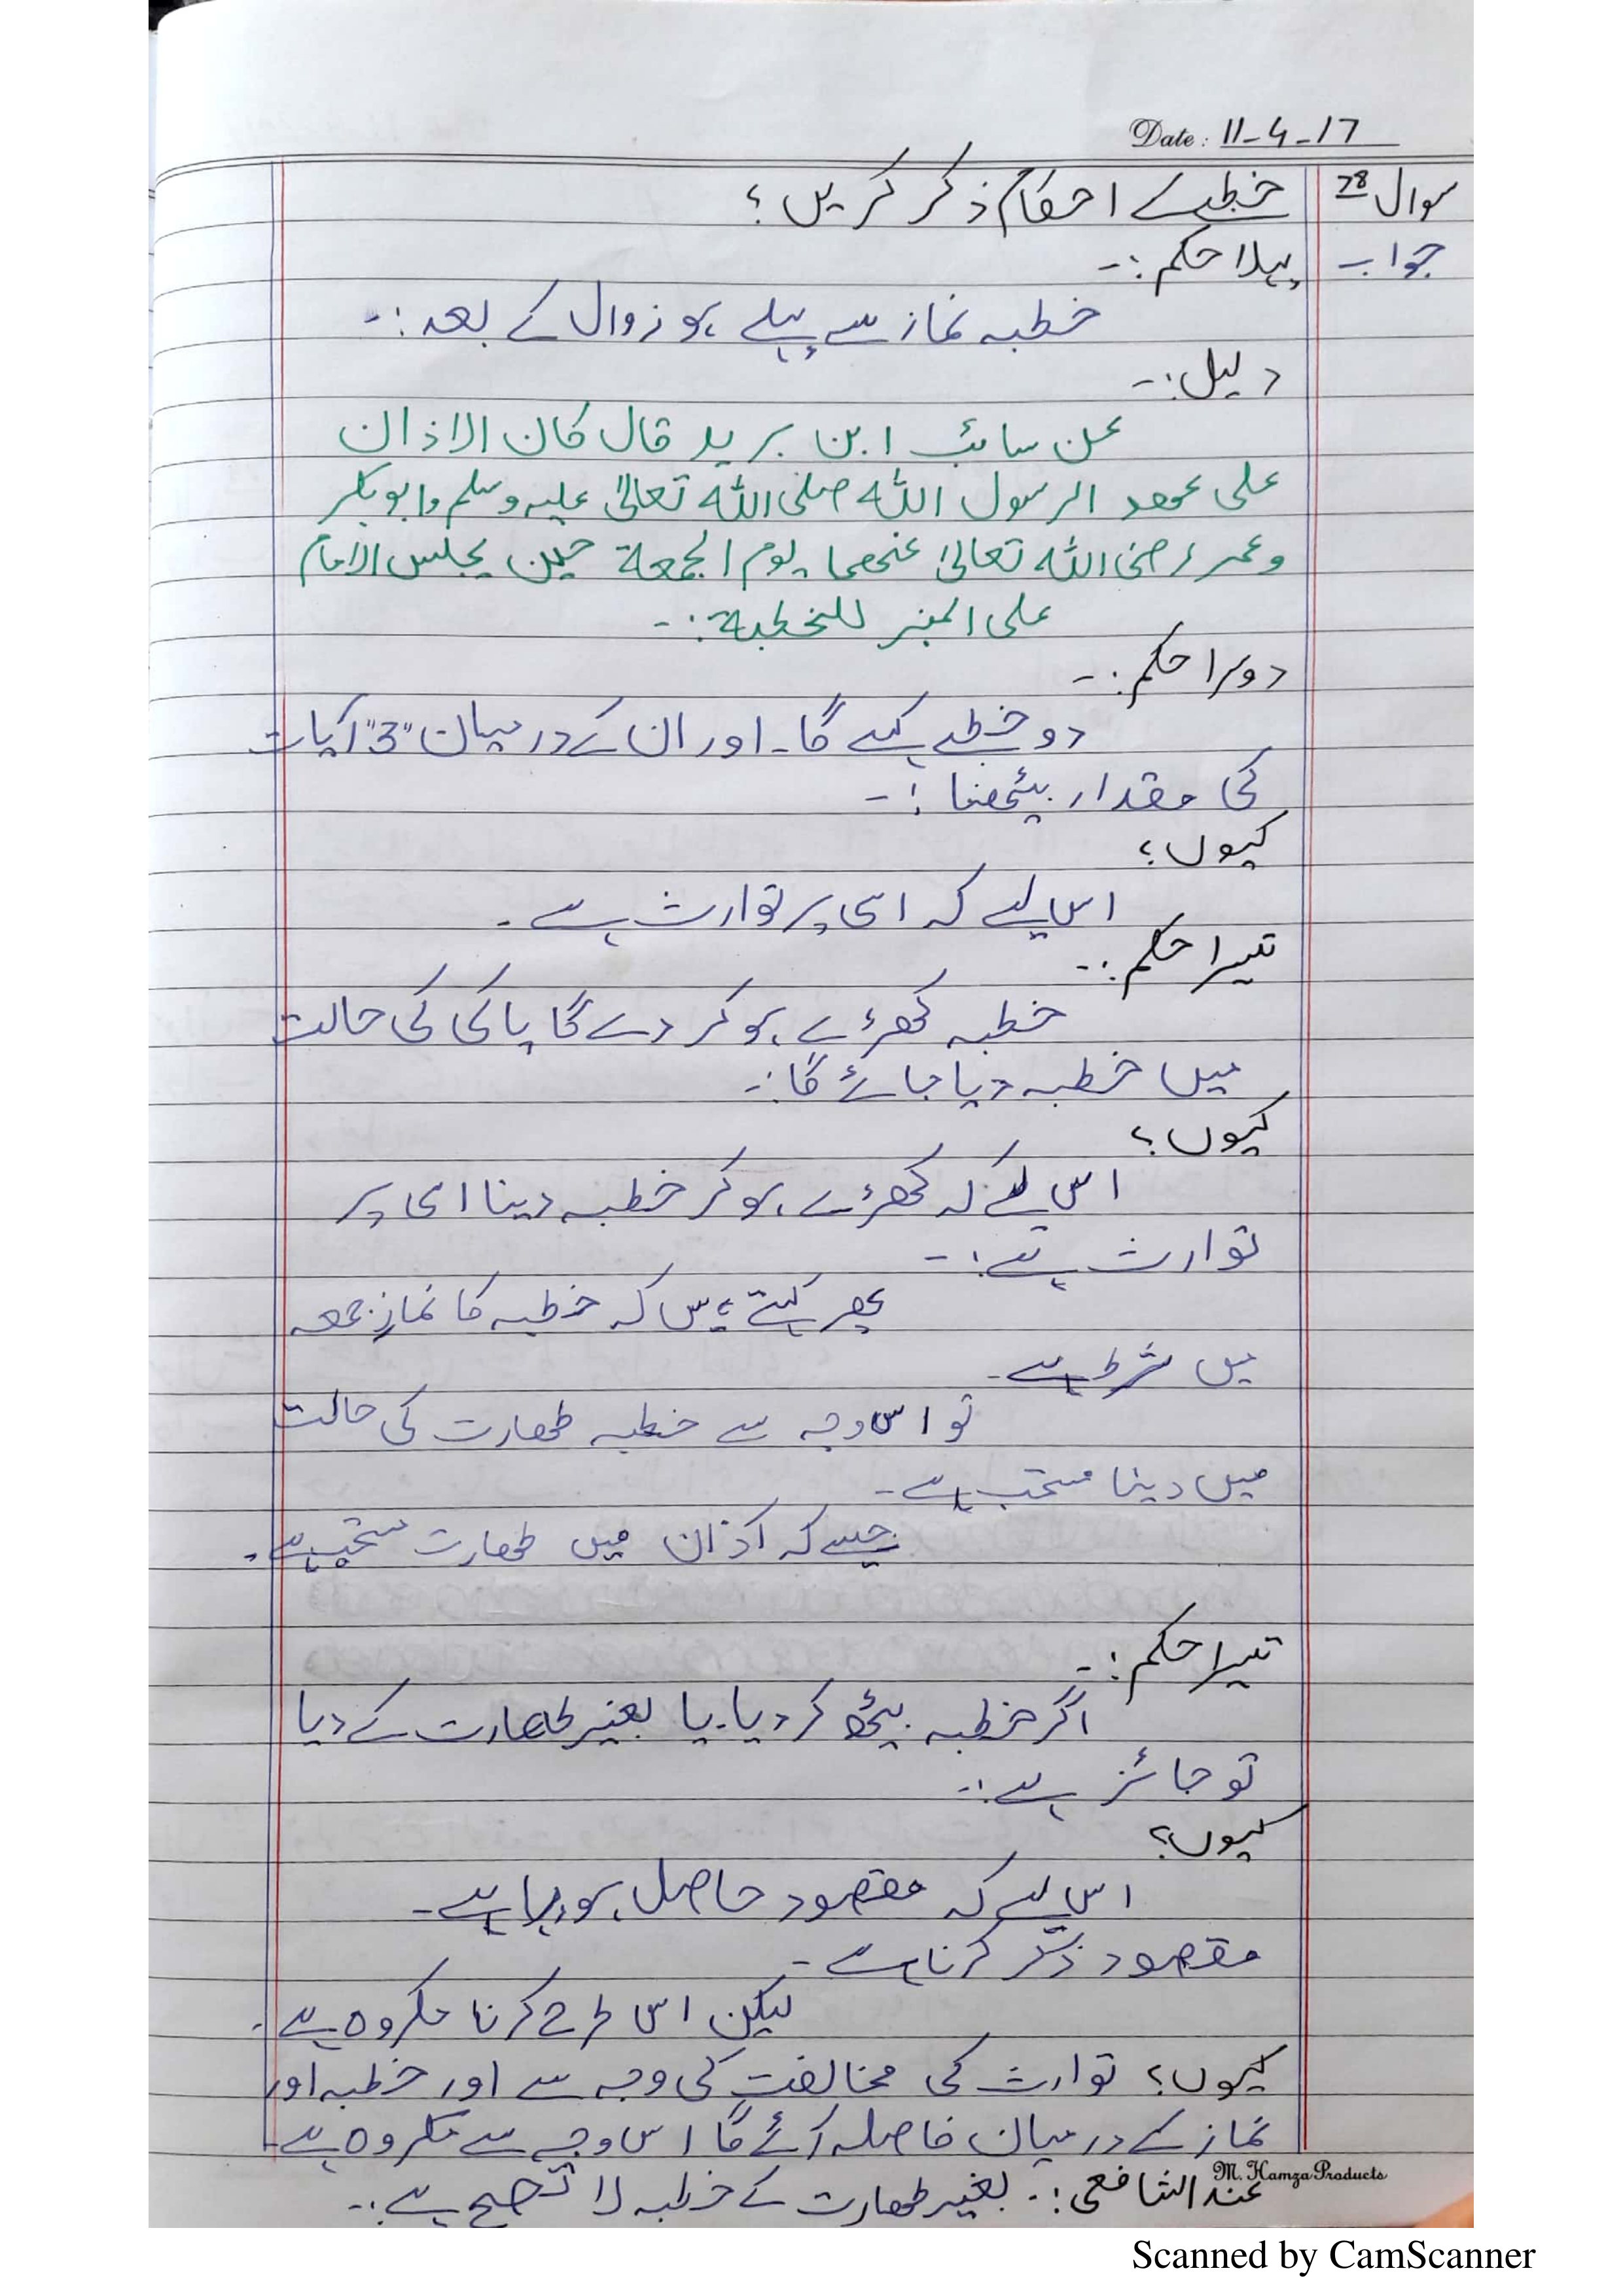 Date: 11-4-17
سوال 28 خطبے احکام ذکر کریں؟
جواب پہلا حکم:-
خطبہ نماز سے پہلے ہو زوال کے بعد:-
دلیل:-
عن سائب ابن یرید قال کان الاذان
علی عھد الرسول اللہ صلی اللہ تعالیٰ علیہ وسلم وابوبکر
وعمر رضی اللہ تعالیٰ عنھما یوم الجمعة حین یجلس الامام
علی المنبر للخطبة:-
دوسرا حکم:-
دو خطبے کہے گا۔ اور ان کے درمیان "3" آیات
کی مقدار بیٹھنا:-
کیوں؟
اس لیے کہ اسی پر توارث ہے۔
تیسرا حکم:-
خطبہ کھڑے ہو کر دے گا پاکی کی حالت
میں خطبہ دیا جائے گا:-
کیوں؟
اس لئے کہ کھڑے ہو کر خطبہ دینا اسی پر
توارث ہے:-
پھر کہتے ہیں کہ خطبہ کا نمازِ جمعہ
میں شرط ہے۔
تو اس وجہ سے خطبہ طھارت کی حالت
میں دینا مستحب ہے۔
جیسے کہ آذان میں طھارت مستحب ہے۔
تیسرا حکم:-
اگر خطبہ بیٹھ کر دیا۔ یا بغیر طھارت کے دیا
تو جائز ہے:-
کیوں؟
اس لیے کہ مقصود حاصل ہو رہا ہے۔
مقصود ذکر کرنا ہے۔
لیکن اس طرح کرنا مکروہ ہے۔
کیوں؟ توارث کی مخالفت کی وجہ سے اور خطبہ اور
نماز کے درمیان فاصلہ آئے گا اس وجہ سے مکروہ ہے۔
M. Hamza Products
عند الشافعی:- بغیر طھارت کے خطبہ لا تصح ہے:-
Scanned by CamScanner